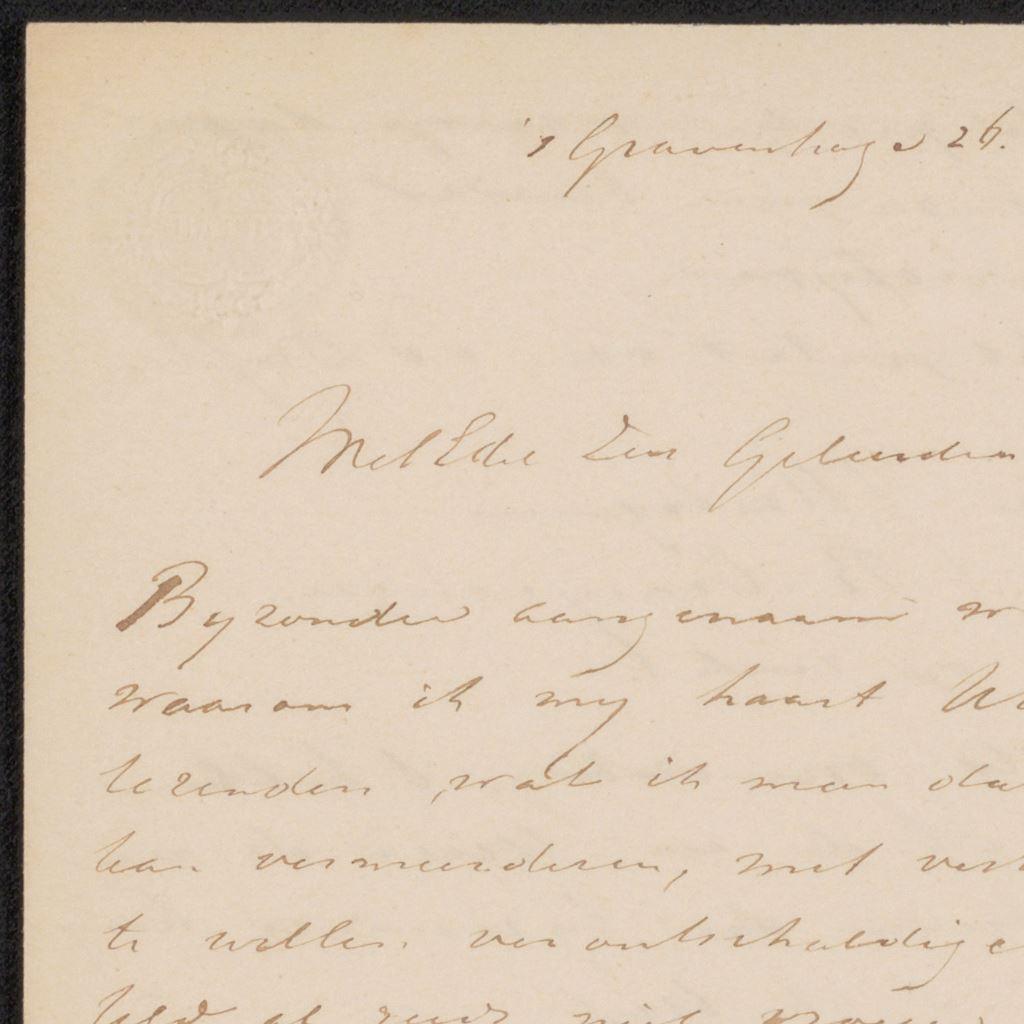 's Gravenhage 26.
WelEdel Zeer Geleerden
Byzonder aangenaam
waarom ik my haast
te zenden, wat ik meen
kan vermeerderen, met
te willen verontschuldige
niet